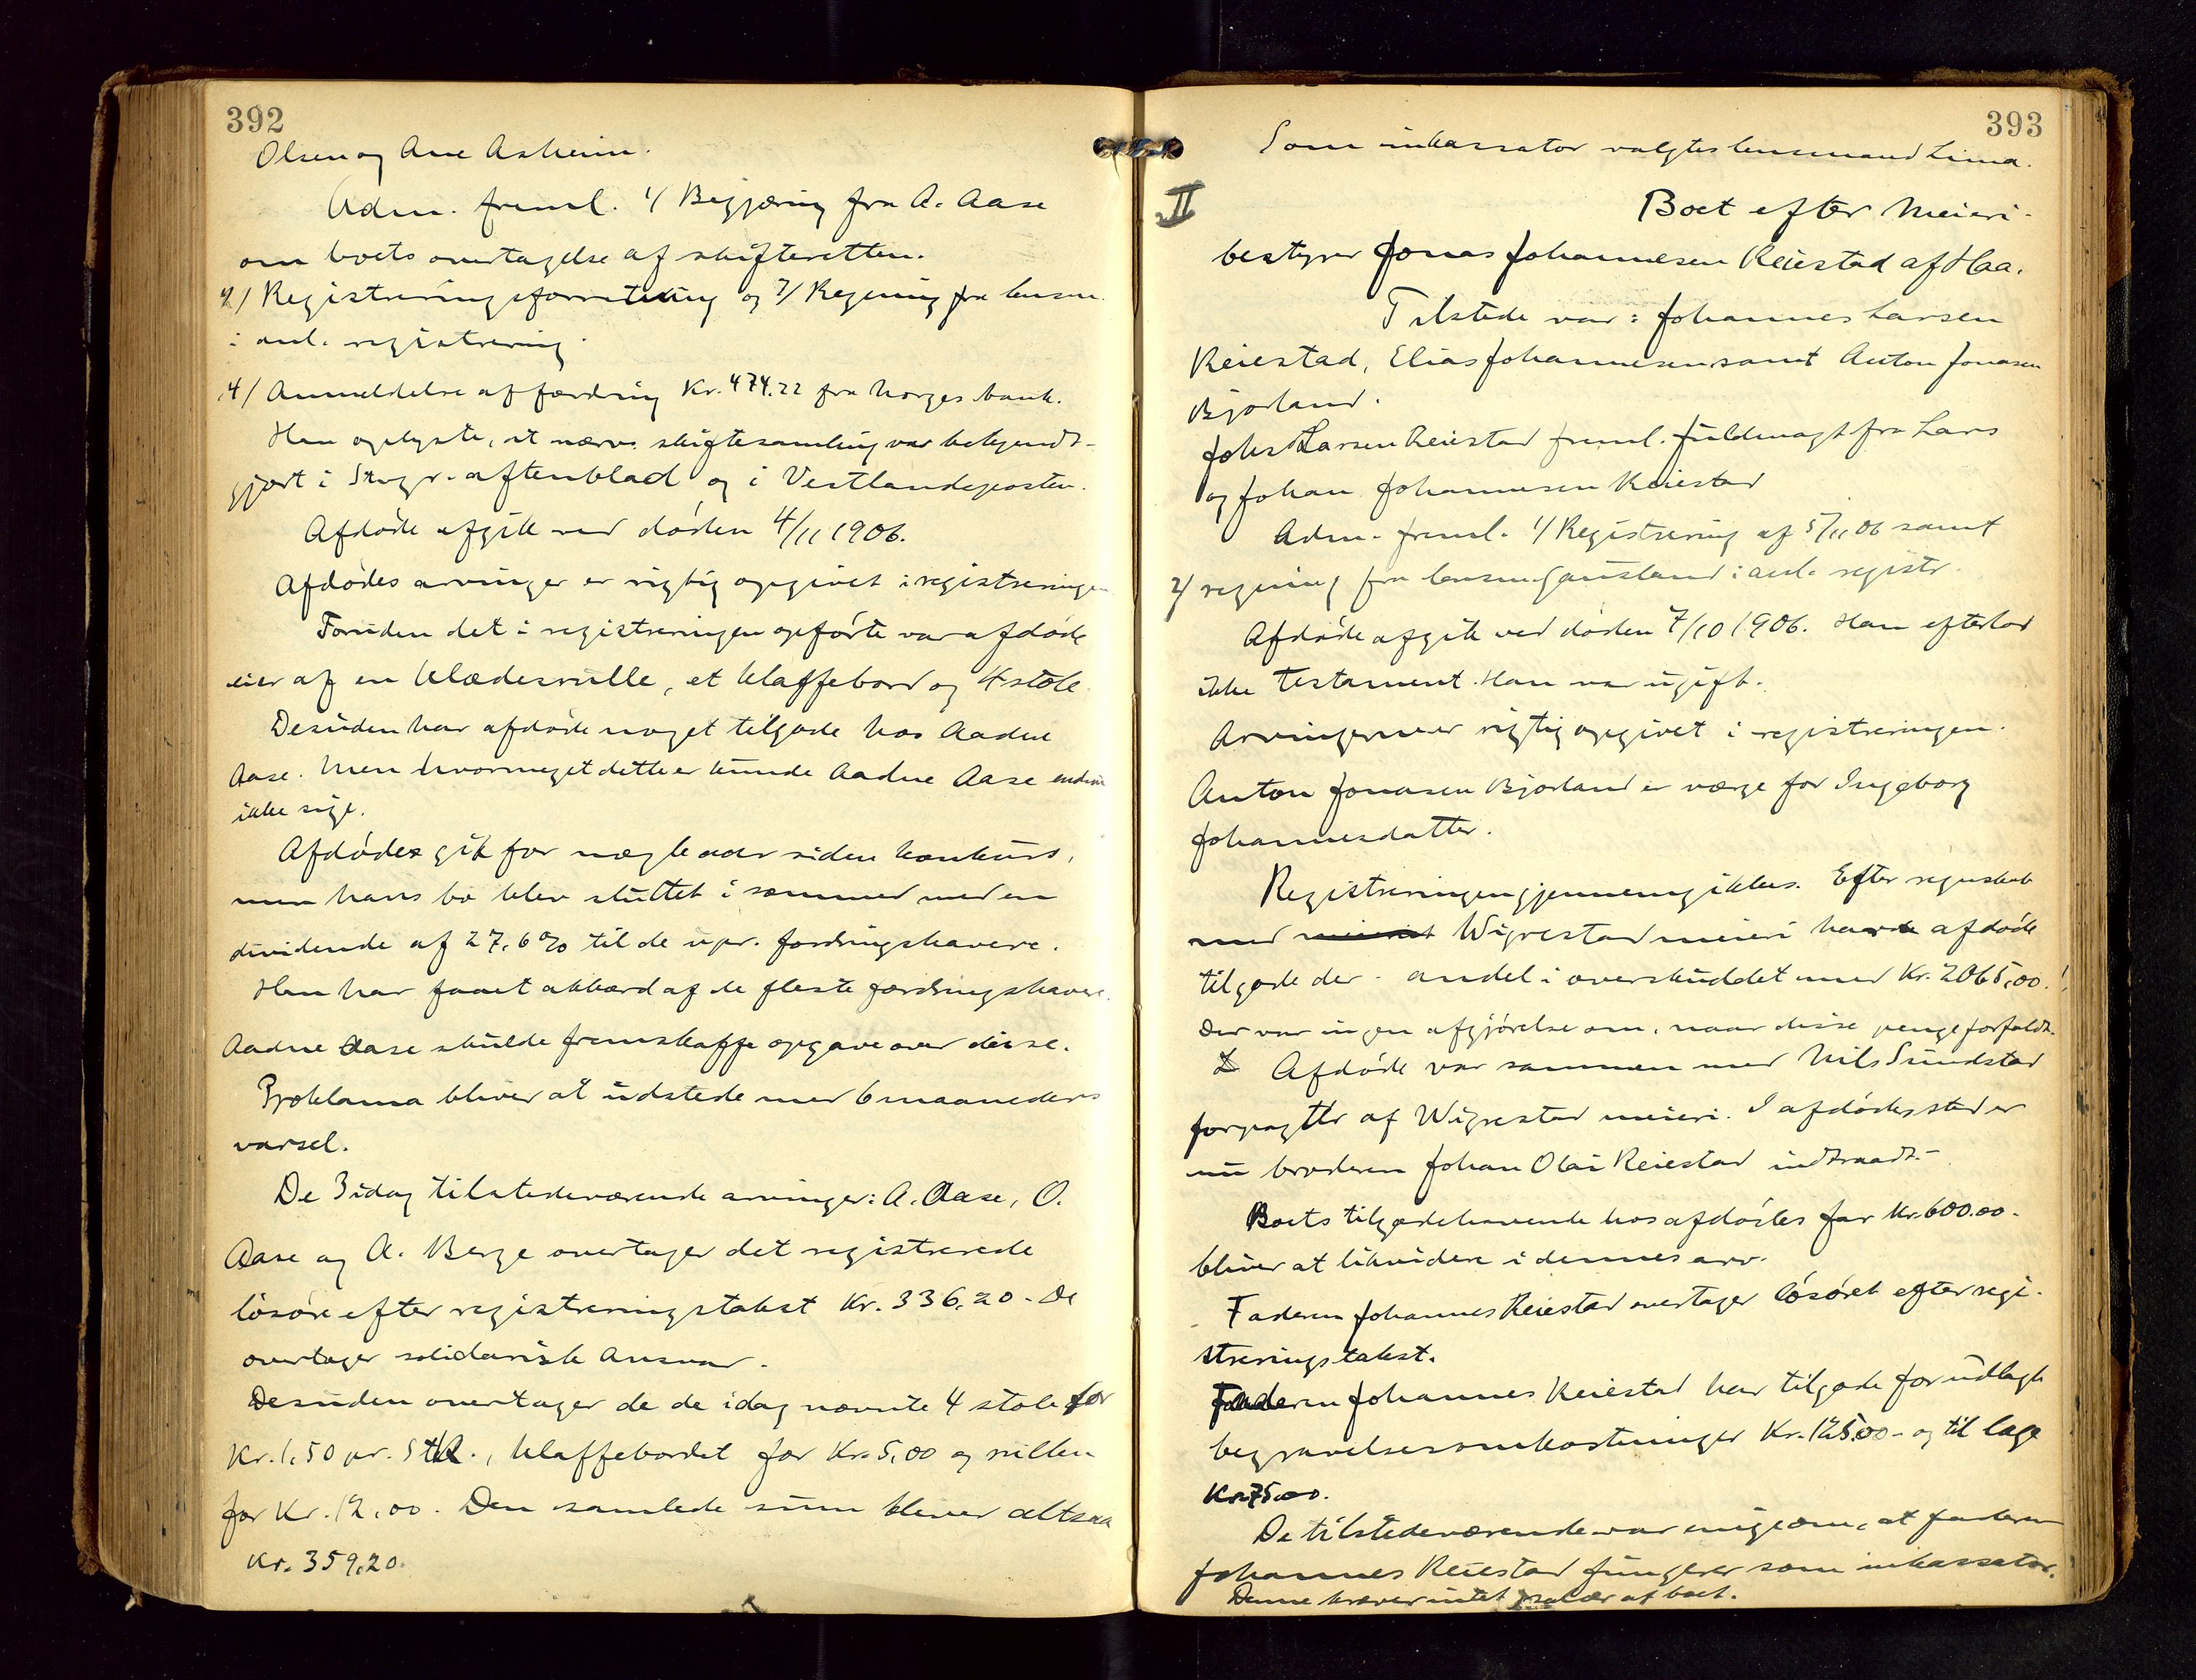 392
Olsen og Ane Asheim.
Adm. freml. 1/ Begjæring fra A. Aase
om boets overtagelse af skifteretten.
2/ Registreringsforretning og 3/ Regning fra lensm.
i anl. registrering.
4/ Anmeldelse af fordring Kr. 474.22 fra Norges bank.
Han oplyste, at nærv. skiftesamling var bekjendt-
gjort i Stvgr. aftenblad og i Vestlandsposten.
Afdøde afgik ved døden 4/11 1906.
Afdødes arvinger er rigtig opgivet i registreringen
Foruden det i registreringen opførte var afdøde
eier af en klædesrulle, et klaffebord og 4 stole.
Desuden har afdøde noget tilgode hos Aadne
Aase. Men hvormeget dette er kunde Aadne Aase endnu
ikke sige.
Afdødes gik for nogle aar siden konkurs,
men hans bo blev sluttet i sommer med en
dividende af 27,6% til de upr. fordringshavere.
Han har faaet akkord af de fleste fordringshavere.
Aadne Aase skulde fremskaffe opgave over disse.
Proklama bliver at udstede med 6 maaneders
varsel.
De 3 idag tilstedeværende arvinger: A. Aase, O.
Aase og A. Berge overtager det registrerede
løsøre efter registreringstakst Kr. 336,20 - De
overtager solidarisk ansvar.
Desuden overtager de de idag nævnte 4 stole for
Kr. 1,50 pr. Stk., klaffebordet for Kr. 5,00 og rullen
for Kr. 12,00. Den samlede sum bliver altsaa
Kr. 359,20.
393
Som inkassator valgtes lensmand Lima.
II
Boet efter Meieri-
bestyrer Jonas Johannesen Reiestad af Haa.
Tilstede var: Johannes Larsen
Reiestad, Elias Johannesen samt Anton Jonasen
Bjorland.
Johs Larsen Reiestad freml. fuldmagt fra Lars
og Johan Johannesen Reiestad
Adm. freml. 1/ Registrering af 5/11 06 samt
2/ regning fra lensm. Gausland i anl. registr.
Afdøde afgik ved døden 7/10 1906. Han efterlod
ikke testament. Han var ugift.
Arvingerne er rigtig opgivet i registreringen.
Anton Jonasen Bjorland er værge for Ingeborg
Johannesdatter.
Registreringen gjennemgikkes. Efter regnskab
med meieriet Wigrestad meieri havde afdøde
tilgode der - andel i overskuddet med Kr. 2065,00.
Der var ingen afgjørelse om, naar disse penge forfaldt.
Afdøde var sammen med Nils Sundstad
forpagter af Wigrestad meieri. I afdødes sted er
nu broderen Johan Olai Reiestad indtraadt.-
Boets tilgodehavende hos afdødes far Kr. 600.00-
bliver at likvidere i dennes arv.
Faderen Johannes Reiestad overtager løsøret efter regi-
streringstakst.
Faderen Johannes Reiestad har tilgode for udlagte
begravelsesomkostninger Kr. 125.00- og til læge
Kr. 75.00.
De tilstedeværende var enige om, at faderen
Johannes Reiestad fungerer som inkassator.
Denne kræver intet salær af boet.